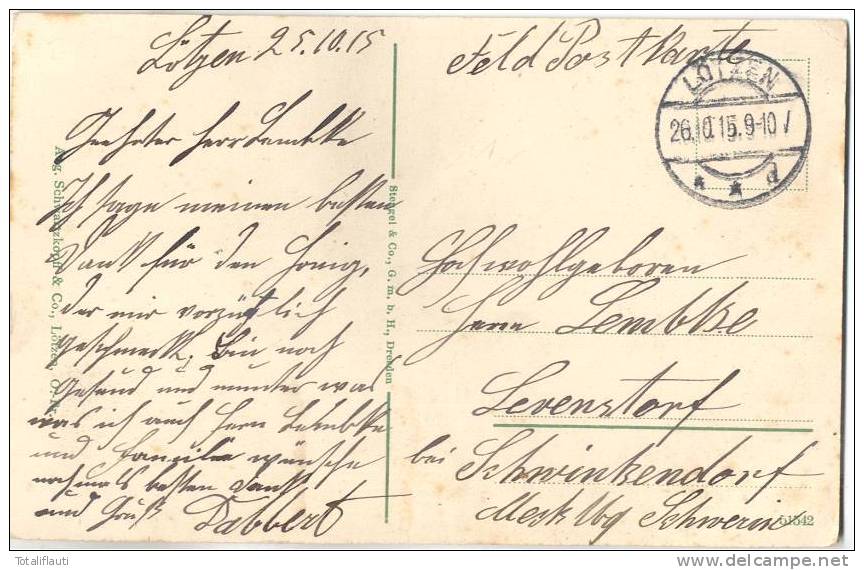 Lötzen 25.10.15
Geehrter Herr Lembke
Ich sage meinen besten
Dank für den Honig,
der mir vorzüglich
geschmeckt, bin noch
gesund und munter was
was ich auch Herrn Lembke
und Familie wünsche
nochmals besten Dank
und Gruß Dabbert
Aug. Schwarzkopf & Co., Lötzen, O.-
Stengel & Co., G. m. b. H., Dresden
Feld Postkarte
LÖTZEN
26.10.15.9-10
* * d
Hochwohlgeboren
Herrn Lembke
Levenstorf
bei Schwinkendorf
Mecklbg Schwerin
51542
Totaliflauti
delcampe.net